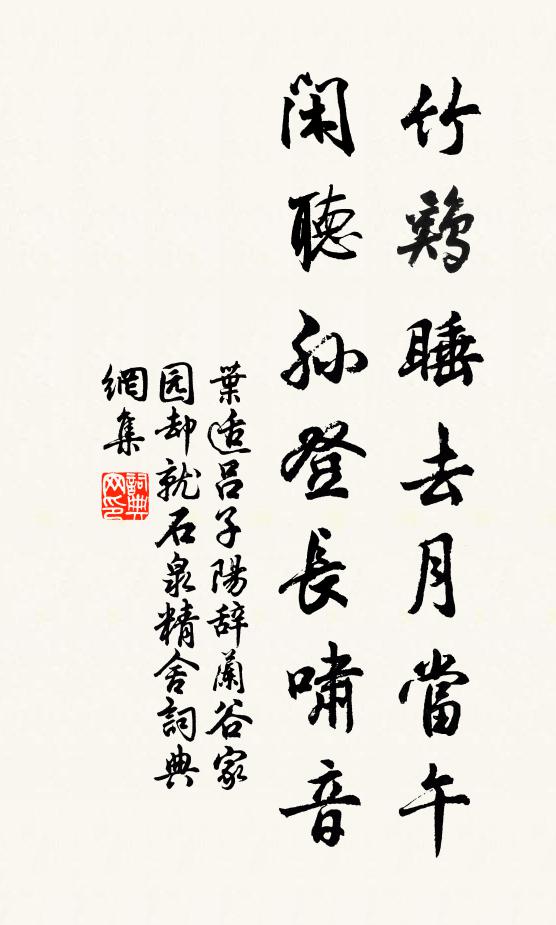 竹鷄睡去月當午
閑聽孫登長嘯音
葉适吕子陽辞蘭谷家
园却就石泉精舍詞典
網集
詞典
网印